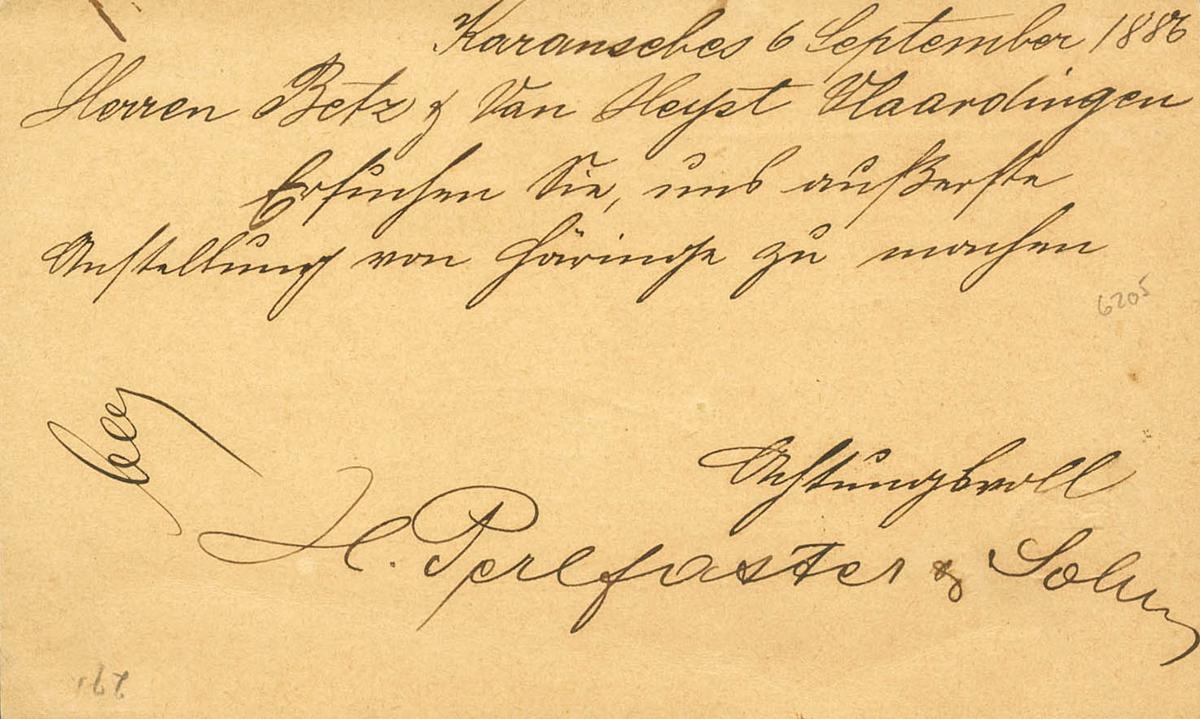 Karansebes 6 September 1886
Herren Betz & Van Heyst Vlaardingen
Ersuchen Sie, uns äußerste
Anstellung von Häringe zu machen
6205
Achtungsvoll
H. Perlfaster & Sohn